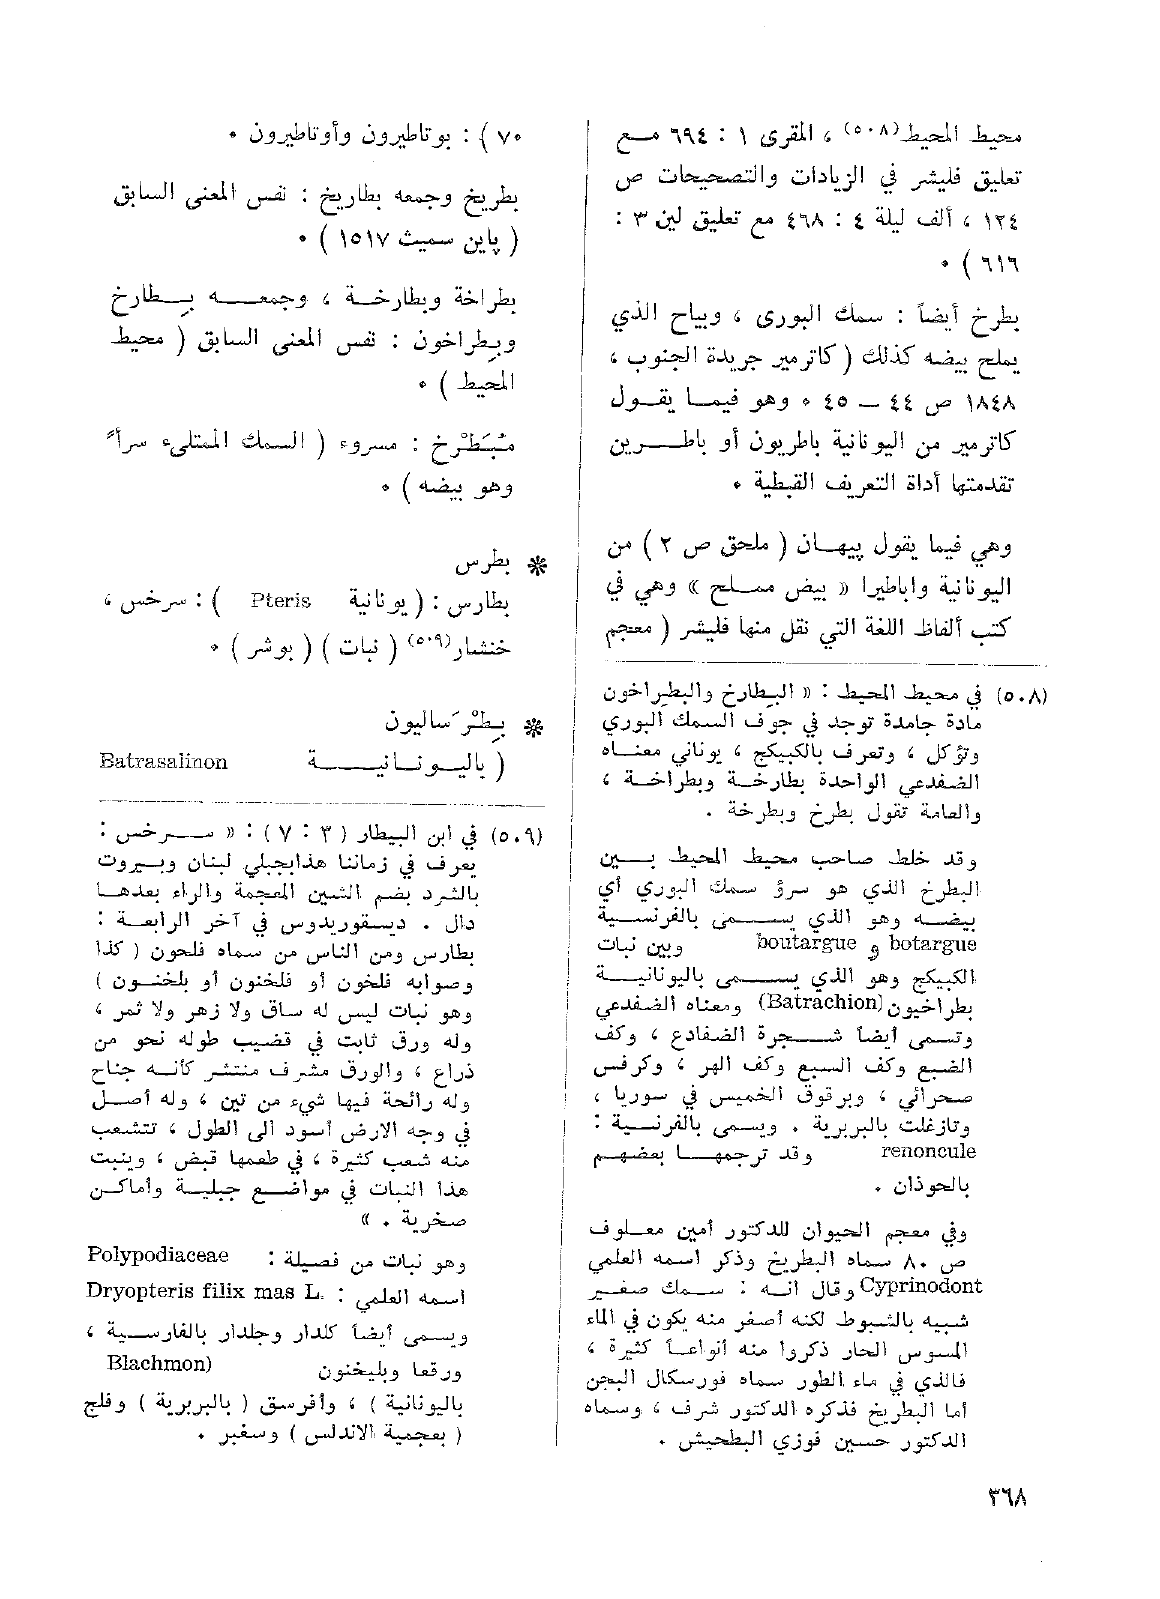 محيط المحيط(٥٠٨) ، المقرى ١ : ٦٩٤ مع
تعليق فليشر في الزيادات والتصحيحات ص
١٢٤ ، ألف ليلة ٤ : ٤٦٨ مع تعليق لين ٣ :
٦١٦ ) ٠
بطرخ أيضاً : سمك البورى ، وبياح الذي
يملح بيضه كذلك ( كاترمير جريدة الجنوب ،
١٨٤٨ ص ٤٤ ـ ٤٥ ٠ وهو فيما يقول
كاترمير من اليونانية باطريون أو باطرين
تقدمتها أداة التعريف القبطية ٠
وهي فيما يقول پيهان ( ملحق ص ٢ ) من
اليونانية واباطيرا « بيض مملح » وهي في
كتب ألفاظ اللغة التي نقل منها فليشر ( معجم
(٥٠٨) في محيط المحيط : « البطارخ والبطراخون
مادة جامدة توجد في جوف السمك البوري
وتؤكل ، وتعرف بالكبيكج ، يوناني معناه
الضفدعي الواحدة بطارخة وبطراخة ،
والعامة تقول بطرخ وبطرخة .
وقد خلط صاحب محيط المحيط بين
البطرخ الذي هو سرؤ سمك البوري أي
بيضه وهو الذي يسمى بالفرنسية
botargue و boutargue وبين نبات
الكبيكج وهو الذي يسمى باليونانية
بطراخيون (Batrachion) ومعناه الضفدعي
وتسمى أيضاً شجرة الضفادع ، وكف
الضبع وكف السبع وكف الهر ، وكرفس
صحرائي ، وبرقوق الخميس في سوريا ،
وتازغلت بالبربرية . ويسمى بالفرنسية :
renoncule وقد ترجمها بعضهم
بالحوذان .
وفي معجم الحيوان للدكتور أمين معلوف
ص ٨٠ سماه البطريخ وذكر اسمه العلمي
Cyprinodont وقال انه : سمك صغير
شبيه بالشبوط لكنه أصغر منه يكون في الماء
المسوس الحار ذكروا منه أنواعاً كثيرة ،
فالذي في ماء الطور سماه فورسكال البجن
أما البطريخ فذكره الدكتور شرف ، وسماه
الدكتور حسين فوزي البطحيش .
٧٠ ) : بوتاطيرون وأوتاطيرون ٠
بطريخ وجمعه بطاريخ : نفس المعنى السابق
( پاين سميث ١٥١٧ ) ٠
بطراخة وبطارخة ، وجمعه بِطارخ
وبِطراخون : نفس المعنى السابق ( محيط
المحيط ) ٠
مُبَطْرخ : مسروء ( السمك الممتلىء سرأً
وهو بيضه ) ٠
✼ بطرس
بطارس : ( يونانية Pteris ) : سرخس ،
خنشار(٥٠٩) ( نبات ) ( بوشر ) ٠
✼ بِطْرَساليون
( باليونانية Batrasalinon
(٥٠٩) في ابن البيطار ( ٣ : ٧ ) : « سرخس :
يعرف في زماننا هذابجبلي لبنان وبيروت
بالشرد بضم الشين المعجمة والراء بعدها
دال . ديسقوريدوس في آخر الرابعة :
بطارس ومن الناس من سماه فلحون ( كذا
وصوابه فلخون أو فلخنون أو بلخنون )
وهو نبات ليس له ساق ولا زهر ولا ثمر ،
وله ورق ثابت في قضيب طوله نحو من
ذراع ، والورق مشرف منتشر كأنه جناح
وله رائحة فيها شيء من تين ، وله أصل
في وجه الارض أسود الى الطول ، تتشعب
منه شعب كثيرة ، في طعمها قبض ، وينبت
هذا النبات في مواضع جبلية وأماكن
صخرية . »
وهو نبات من فصيلة : Polypodiaceae
اسمه العلمي : Dryopteris filix mas L.
ويسمى أيضاً كلدار وجلدار بالفارسية ،
ورقعا وبليخنون Blachmon)
باليونانية ) ، وأفرسق ( بالبربرية ) وفلج
( بعجمية الاندلس ) وسفير .
٣٦٨